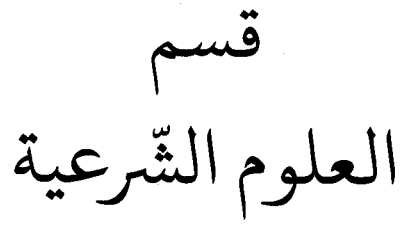 قسم
العلوم الشّرعية